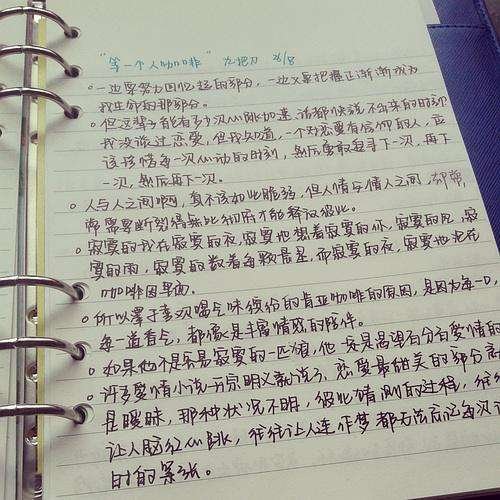 "等一个人咖啡" 九把刀 2/8
一边要努力回忆起的部分,一边又要把握正渐渐成为
我生命的那部分。
但这辈子能有多少次心跳加速,话都快说不出来的时刻
我没谈过恋爱,但我知道,一个对恋爱有信仰的人,应
该珍惜每一次心动的时刻,然后勇敢追寻下一次,再下
一次,然后再下一次。
人与人之间啊,真不该如此脆弱,但人情与情人之间,却常
常需要断
才能释放彼此。
寂寞的我在寂寞的夜,寂寞地想着寂寞的你,寂寞的风,寂
寞的雨,寂寞的数着每颗星星,而寂寞的夜,寂寞地
咖啡因里面。
所以羼于李次喝气味缤纷的肯亚咖啡的原因,是因为每一口,
每一道香气,都像是丰富情感的陪伴。
如果他不是容易寂寞的一匹狼,他一定是渴望百分百爱情的
许多爱情小说开宗明义就说了,恋爱最甜美的部分
是暧昧,那种状况不明,彼此猜测的过程,往往
让人脸红心跳,往往让人连作梦都无法忘记每次
时的紧张。